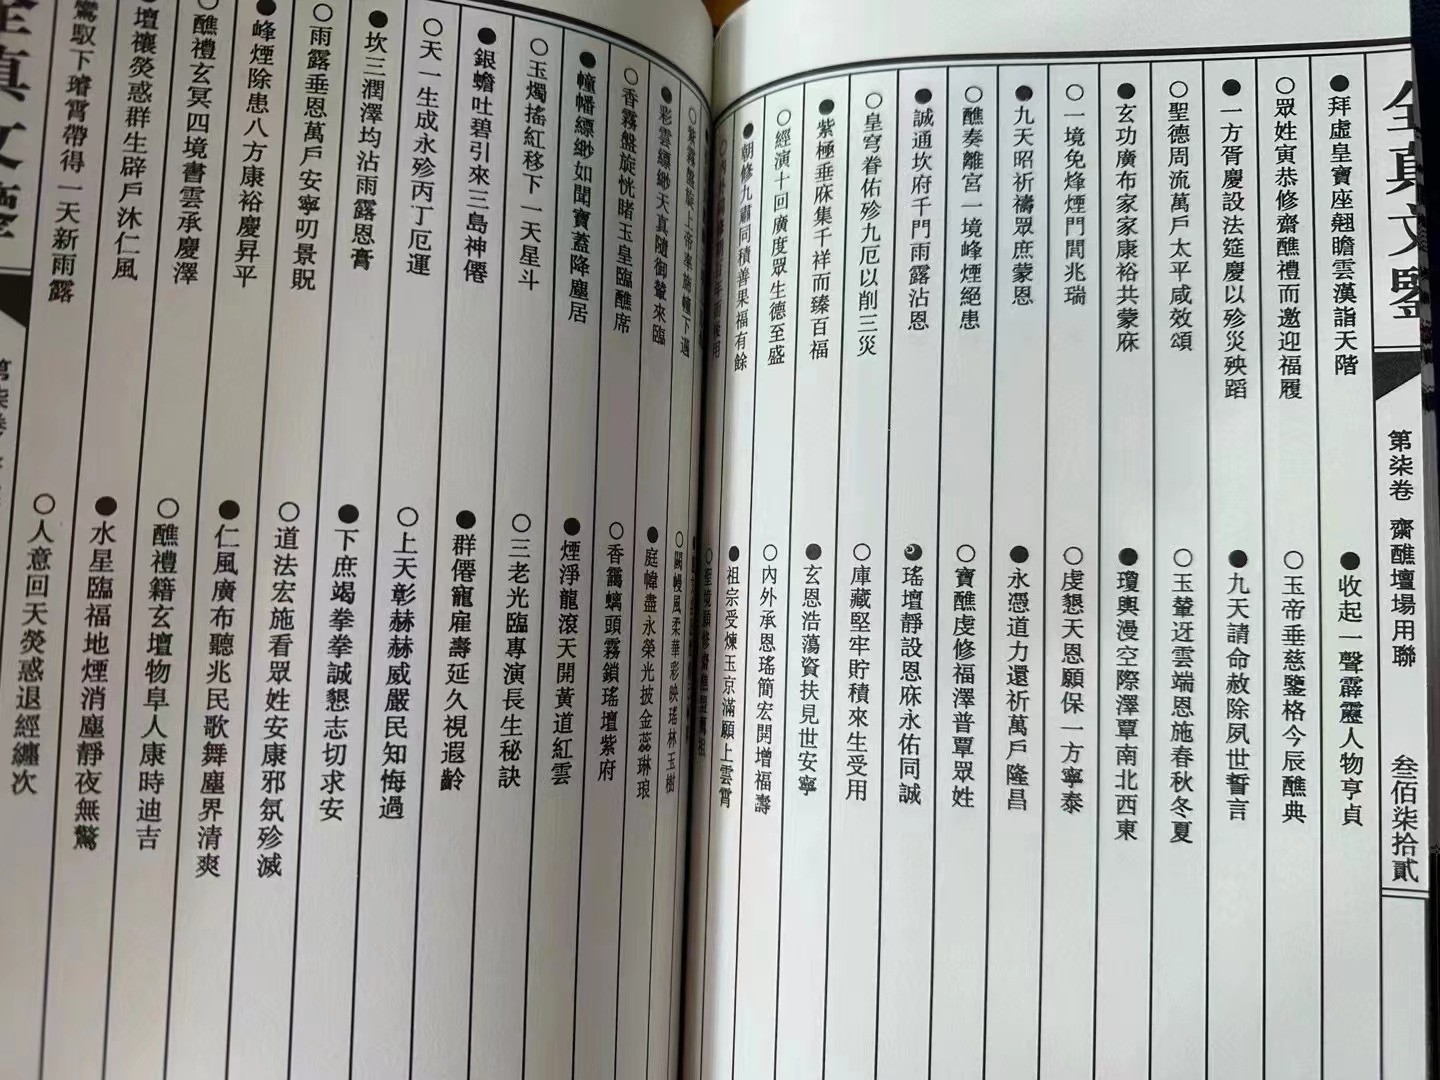 全真文鑒
第柒卷 齋醮壇場用聯
叁佰柒拾貳
●拜虛皇寶座翹瞻雲漢詣天階
●收起一聲霹靂人物亨貞
○眾姓寅恭修齋醮禮而邀迎福履
○玉帝垂慈鑒格今辰醮典
●一方胥慶設法筵慶以殄災殃蹈
●九天請命赦除夙世誓言
○聖德周流萬戶太平咸效頌
○玉輦迓雲端恩施春秋冬夏
●玄功廣布家家康裕共蒙庥
●瓊輿漫空際澤覃南北西東
○一境免烽煙門閭兆瑞
○虔懇天恩願保一方寧泰
●九天昭祈禱眾庶蒙恩
●永憑道力還祈萬戶隆昌
○醮奏離宮一境峰煙絕患
○寶醮虔修福澤普覃眾姓
●誠通坎府千門雨露沾恩
●瑤壇靜設恩庥永佑同誠
○皇穹眷佑殄九厄以削三災
○庫藏堅牢貯積來生受用
●紫極垂庥集千祥而臻百福
●玄恩浩蕩資扶見世安寧
○經演十回廣度眾生德至盛
○內外承恩瑤簡宏開增福壽
●朝修九肅同積善果福有餘
●祖宗受煉玉京滿願上雲霄
●彩雲縹緲天真隨御輦來臨
●庭幃盡永榮光披金蕊琳琅
○闕幔風柔華彩映瑤林玉樹
○香霧盤旋恍睹玉皇臨醮席
○香靄螭頭霧鎖瑤壇紫府
●幢幡縹緲如聞寶蓋降塵居
●煙淨龍滾天開黃道紅雲
○玉燭搖紅移下一天星斗
○三老光臨專演長生秘訣
●銀蟾吐碧引來三島神僊
●群僊寵雇壽延久視遐齡
○天一生成永殄丙丁厄運
○上天彰赫赫威嚴民知悔過
●坎三潤澤均沾雨露恩膏
●下庶竭拳拳誠懇志切求安
○雨露垂恩萬戶安寧叨景貺
○道法宏施看眾姓安康邪氛殄滅
●峰煙除患八方康裕慶昇平
●仁風廣布聽兆民歌舞塵界清爽
○醮禮玄冥四境書雲承慶澤
○醮禮籍玄壇物阜人康時迪吉
●壇禳熒惑群生辟戶沐仁風
●水星臨福地煙消塵靜夜無驚
鸞馭下璿霄帶得一天新雨露
○人意回天熒惑退經纏次